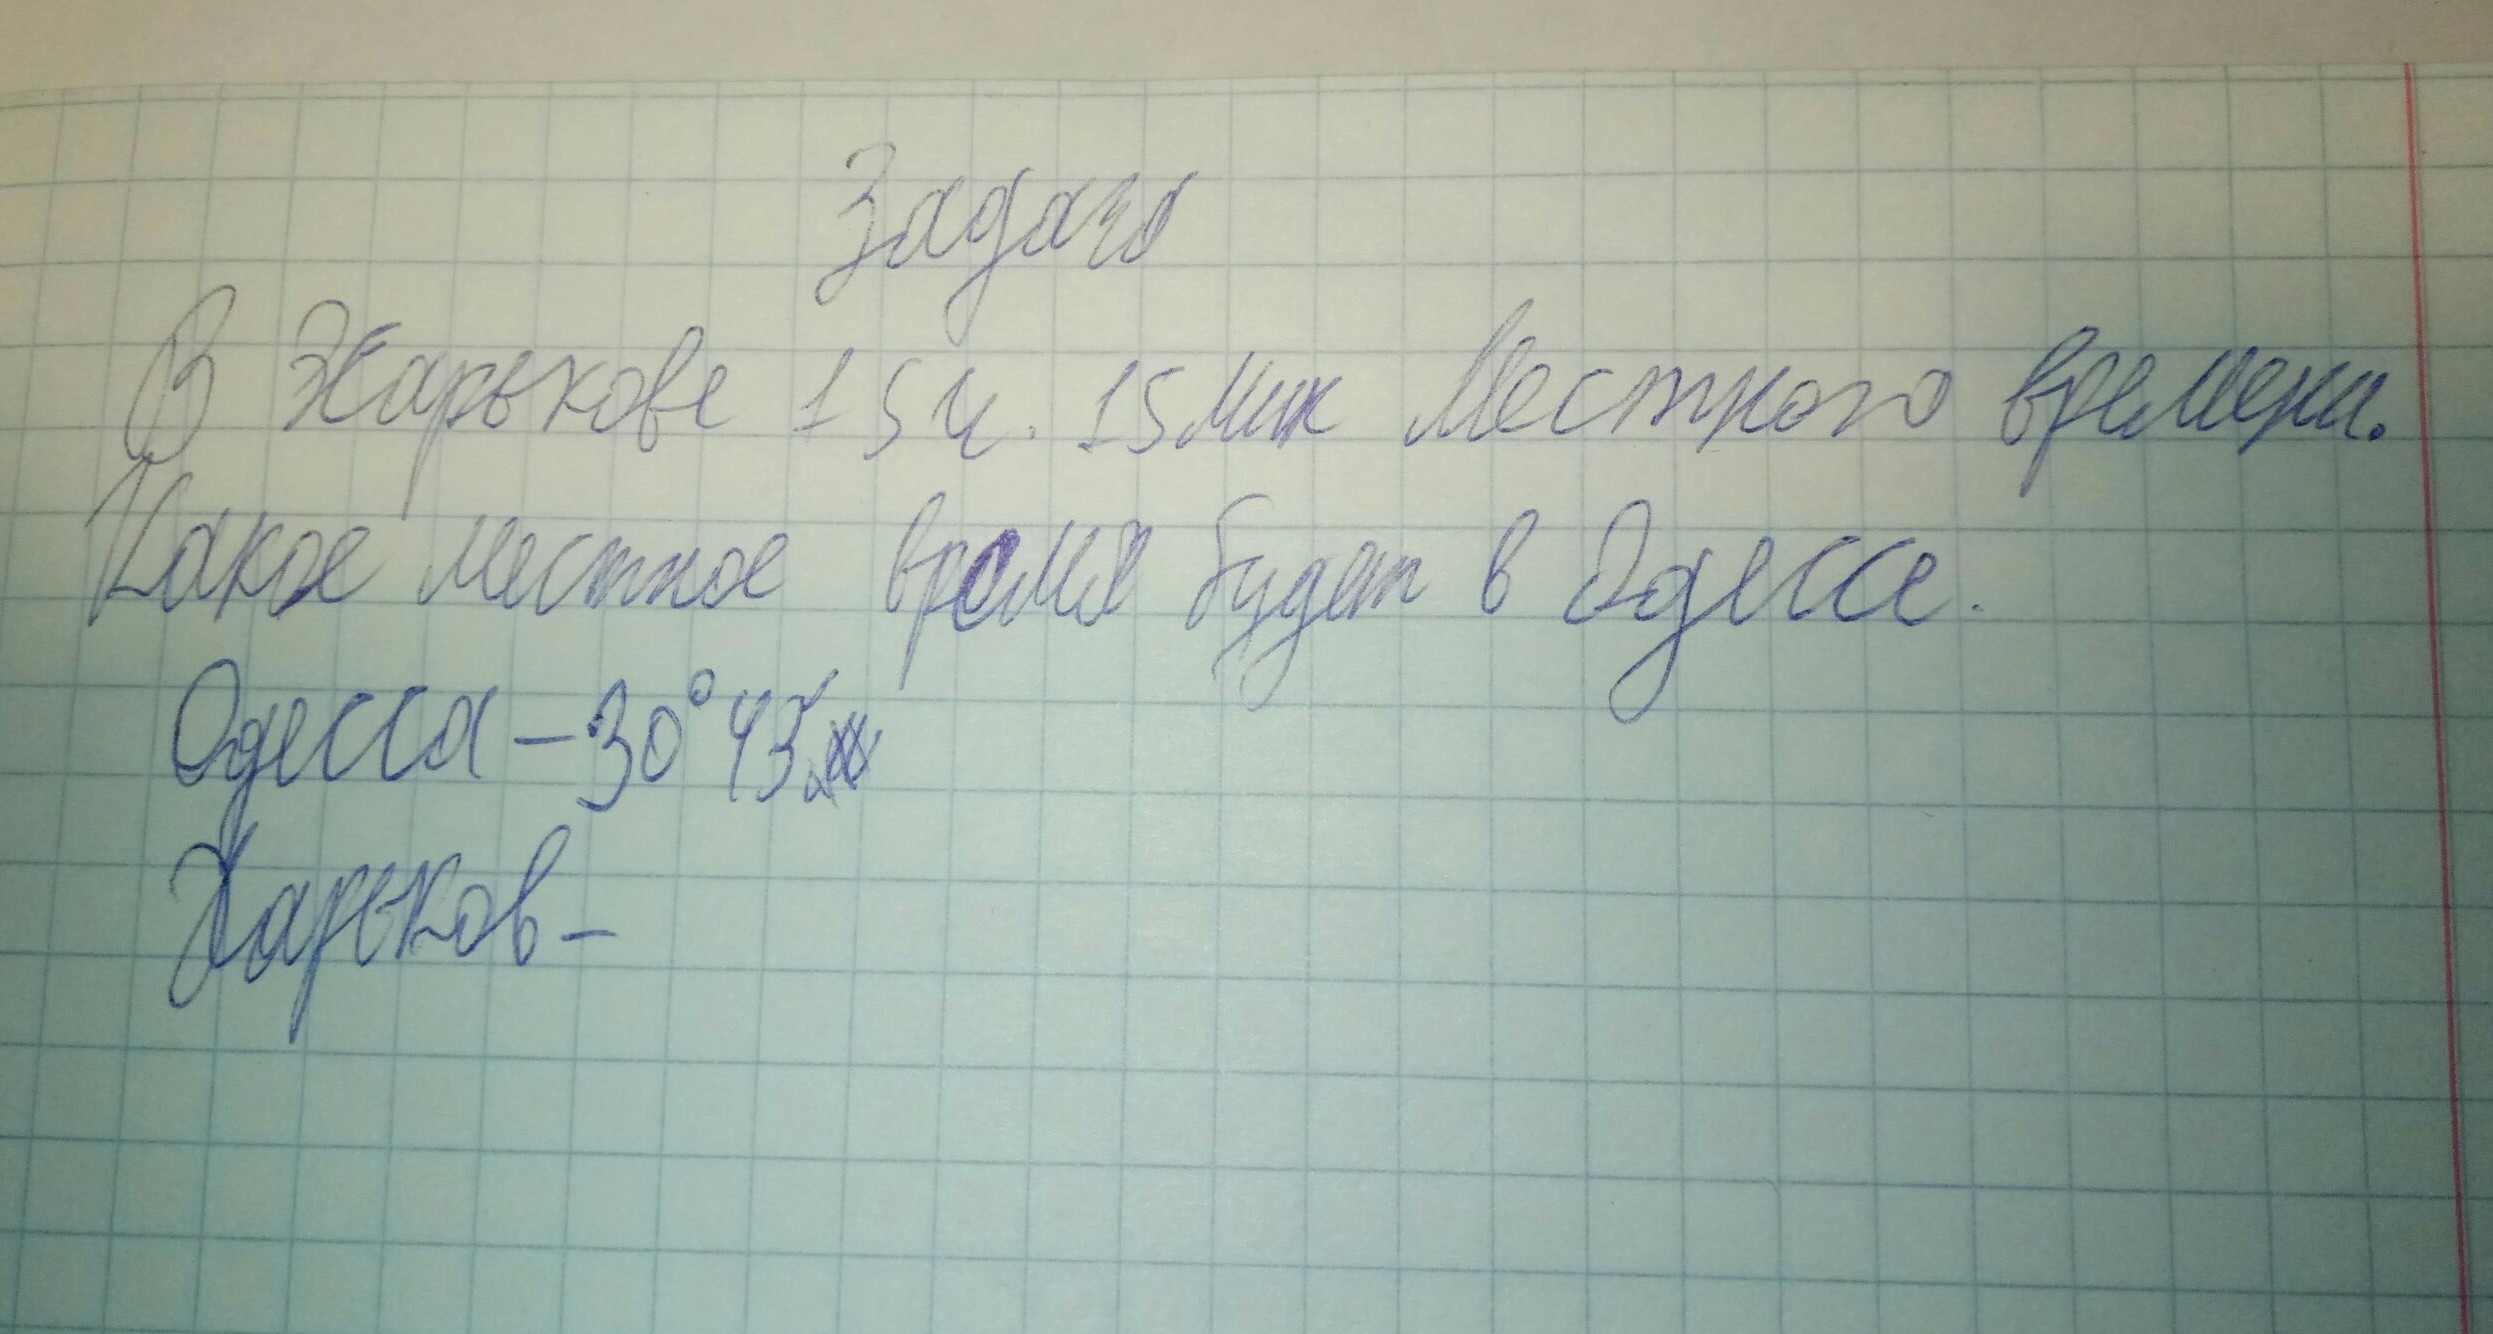 Задача
В Харькове 15 ч. 15 мин Местного времени.
Какое местное время будет в Одессе.
Одесса - 30° 43'
Харьков -